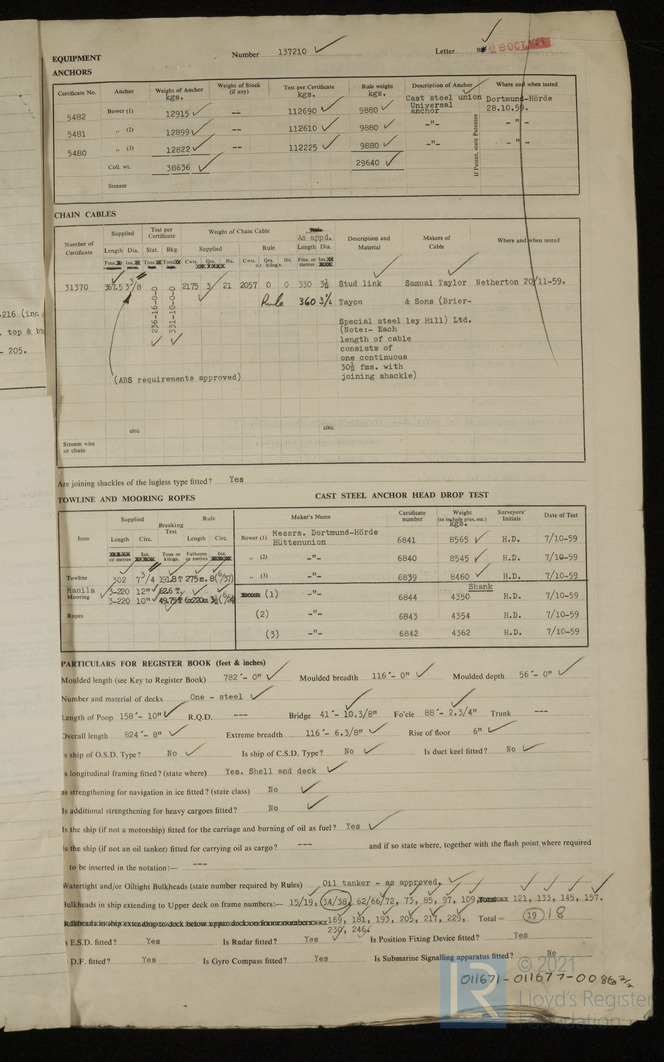 EQUIPMENT
Number 137210 Letter
ANCHORS
Certificate No. Anchor Weight of Anchor kgs. Weight of Stock (if any) Test per Certificate kgs. Rule weight kgs. Description of Anchor Where and when tested
5482 Bower (1) 12915 -- 112690 9880 Cast steel union Universal anchor Dortmund-Hörde 28.10.59.
5481 „ (2) 12899 -- 112610 9880 -"- - " -
5480 „ (3) 12822 -- 112225 9880 -"- - " -
Coll. wt. 38636 29640
Stream
If Patent, state Patentee
CHAIN CABLES
Number of Certificate Supplied Length Dia. Test per Certificate Stat. Bkg. Weight of Chain Cable Supplied Cwts. Qrs. lbs. Rule Cwts. Qrs. lbs. or kilogs. As appd. Length Dia. Description and Material Makers of Cable Where and when tested
31370 367.5 3 7/8 236-16-0-0 331-10-0-0 2175 3 21 2057 0 0 330 3½ Stud link Samuel Taylor Netherton 20/11-59.
Rule 360 Tayco & Sons (Brier-
Special steel ley Hill) Ltd.
(Note:- Each
length of cable
consists of
one continuous
30½ fms. with
joining shackle)
(ABS requirements approved)
circ circ.
Stream wire or chain
Are joining shackles of the lugless type fitted? Yes
TOWLINE AND MOORING ROPES CAST STEEL ANCHOR HEAD DROP TEST
Item Supplied Length Circ. Breaking Test Rule Length Circ. Maker's Name Certificate number Weight (to include pins, etc.) kgs. Surveyors' Initials Date of Test
Bower (1) Messrs. Dortmund-Hörde Hüttenunion 6841 8565 H.D. 7/10-59
„ (2) -"- 6840 8545 H.D. 7/10-59
Towline 302 7 3/4 191.8T 275m. „ (3) -"- 6839 8460 H.D. 7/10-59
Shank
Manila Mooring 3-220 12" 62.6 T. (1) -"- 6844 4350 H.D. 7/10-59
3-220 10" 49.75T 6x220m
Ropes (2) -"- 6843 4354 H.D. 7/10-59
(3) -"- 6842 4362 H.D. 7/10-59
PARTICULARS FOR REGISTER BOOK (feet & inches)
Moulded length (see Key to Register Book) 782'- 0" Moulded breadth 116'- 0" Moulded depth 56'- 0"
Number and material of decks One - steel
Length of Poop 158'- 10" R.Q.D. --- Bridge 41'- 10.3/8" Fo'cle 88'- 2.3/4" Trunk ---
Overall length 824'- 8" Extreme breadth 116'- 6.3/8" Rise of floor 6"
Is ship of O.S.D. Type? No Is ship of C.S.D. Type? No Is duct keel fitted? No
Is longitudinal framing fitted? (state where) Yes. Shell and deck
Is strengthening for navigation in ice fitted? (state class) No
Is additional strengthening for heavy cargoes fitted? No
Is the ship (if not a motorship) fitted for the carriage and burning of oil as fuel? Yes
Is the ship (if not an oil tanker) fitted for carrying oil as cargo? --- and if so state where, together with the flash point where required
to be inserted in the notation:— ---
Watertight and/or Oiltight Bulkheads (state number required by Rules) Oil tanker - as approved.
Bulkheads in ship extending to Upper deck on frame numbers:— 15/19, 34/38, 62/66/72, 73, 85, 97, 109, 121, 133, 145, 157.
Bulkheads in ship extending to deck below upper deck on frame numbers 169, 181, 193, 205, 217, 229, Total = 19 18
230, 246.
Is E.S.D. fitted? Yes Is Radar fitted? Yes Is Position Fixing Device fitted? Yes
D.F. fitted? Yes Is Gyro Compass fitted? Yes Is Submarine Signalling apparatus fitted? No
011671-011677-0086 2/2
© 2021
Lloyd's Register
Foundation
LR
top &
- 205.